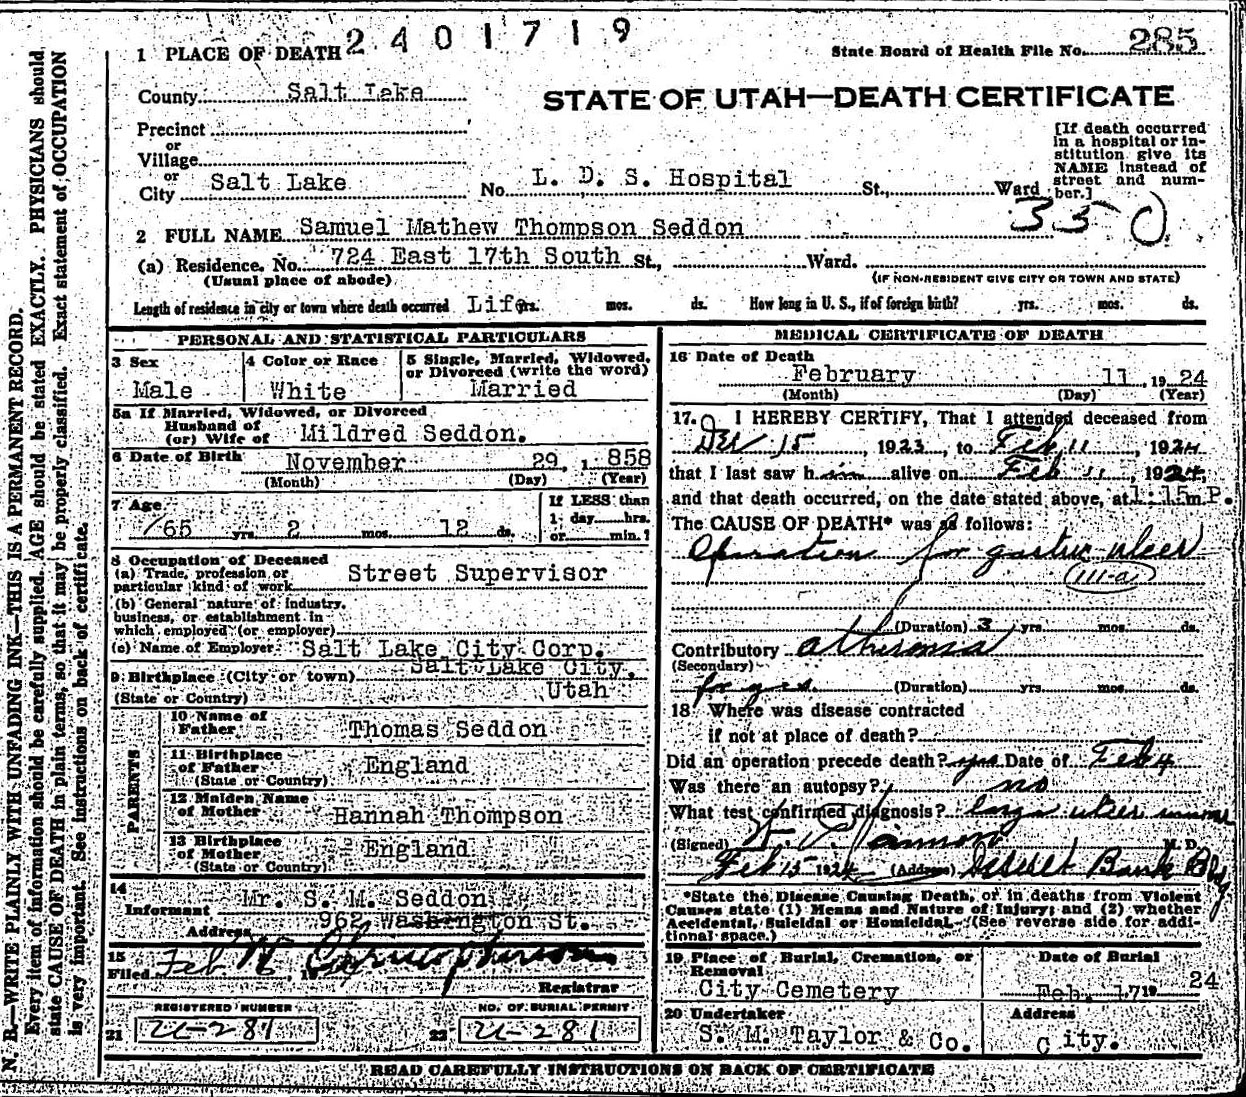 2 4 0 1 7 1 9
1 PLACE OF DEATH
State Board of Health File No. 285
County Salt Lake
STATE OF UTAH—DEATH CERTIFICATE
Precinct
or
Village
or
City Salt Lake
No. L. D. S. Hospital St., Ward
[If death occurred in a hospital or institution give its NAME instead of street and number.]
335 0
2 FULL NAME Samuel Mathew Thompson Seddon
(a) Residence. No. 724 East 17th South St., Ward.
(Usual place of abode)
(IF NON-RESIDENT GIVE CITY OR TOWN AND STATE)
Length of residence in city or town where death occurred Life yrs. mos. ds. How long in U. S., if of foreign birth? yrs. mos. ds.
PERSONAL AND STATISTICAL PARTICULARS
3 Sex
Male
4 Color or Race
White
5 Single, Married, Widowed, or Divorced (write the word)
Married
5a If Married, Widowed, or Divorced
Husband of
(or) Wife of Mildred Seddon.
6 Date of Birth November 29, 1 858
(Month) (Day) (Year)
7 Age
65 yrs. 2 mos. 12 ds.
If LESS than
1 day hrs.
or min.?
8 Occupation of Deceased
(a) Trade, profession or particular kind of work Street Supervisor
(b) General nature of industry, business, or establishment in which employed (or employer)
(c) Name of Employer Salt Lake City Corp.
9 Birthplace (City or town) Salt Lake City,
(State or Country) Utah
PARENTS
10 Name of Father Thomas Seddon
11 Birthplace of Father England
(State or Country)
12 Maiden Name of Mother Hannah Thompson
13 Birthplace of Mother England
(State or Country)
14
Informant Mr. S. M. Seddon
Address 962 Washington St.
15
Filed Feb
Registrar
REGISTERED NUMBER
21
NO. OF BURIAL PERMIT
22
MEDICAL CERTIFICATE OF DEATH
16 Date of Death
February 11, 1924
(Month) (Day) (Year)
17. I HEREBY CERTIFY, That I attended deceased from
Dec 15, 1923, to Feb 11, 1924
that I last saw h im alive on Feb 11, 1924,
and that death occurred, on the date stated above, at 1:15 m P.
The CAUSE OF DEATH* was as follows:
Operation for gastric ulcer
(111-a)
(Duration) 3 yrs. mos. ds.
Contributory atheroma
(Secondary)
for yrs. (Duration) yrs. mos. ds.
18 Where was disease contracted
if not at place of death?
Did an operation precede death? yes Date of Feb 4
Was there an autopsy? no
What test confirmed diagnosis? large ulcer
(Signed) M. D.
Feb 15 1924 (Address) Deseret Bank Bldg
*State the Disease Causing Death, or in deaths from Violent Causes state (1) Means and Nature of Injury; and (2) whether Accidental, Suicidal or Homicidal. (See reverse side for additional space.)
19 Place of Burial, Cremation, or Removal
City Cemetery
Date of Burial
Feb. 17 19 24
20 Undertaker
S. M. Taylor & Co.
Address
City.
READ CAREFULLY INSTRUCTIONS ON BACK OF CERTIFICATE
N. B.—WRITE PLAINLY WITH UNFADING INK—THIS IS A PERMANENT RECORD.
Every item of information should be carefully supplied. AGE should be stated EXACTLY. PHYSICIANS should
state CAUSE OF DEATH in plain terms, so that it may be properly classified. Exact statement of OCCUPATION
is very important. See instructions on back of certificate.